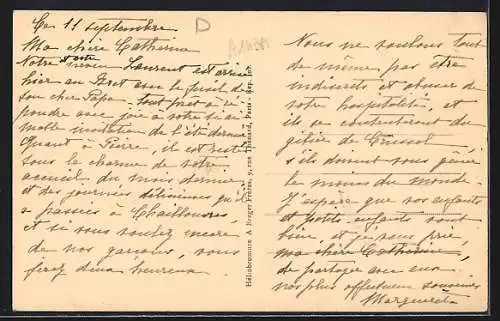 Ce 11 septembre
D
A11431
Ma chère Catherine
Notre et votre neveu Laurent est arrivé
hier au Pzet avec le fusil de
son cher Papa - tout prêt à ré-
pondre avec joie à votre si ai-
mable invitation de l'été dernier
Quant à Pierre, il est resté
sous le charme de votre
accueil du mois dernier
et des journées délicieuses qu'il
a passées à
et si vous voulez encore
de nos garçons, vous
ferez deux heureux.
Héliobromure A. Breger Frères, 9, rue Thénard, Paris - Rep. int.
Nous ne voulons tout
de même pas être
indiscrets et abuser de
votre hospitalité, et
ils se contenteront du
gibier de
s'ils doivent vous gêner
le moins du monde.
J'espère que vos enfants
et petits enfants vont
bien, et je vous prie,
ma chère Catherine,
de partager avec eux
nos plus affectueux souvenirs
Marguerite